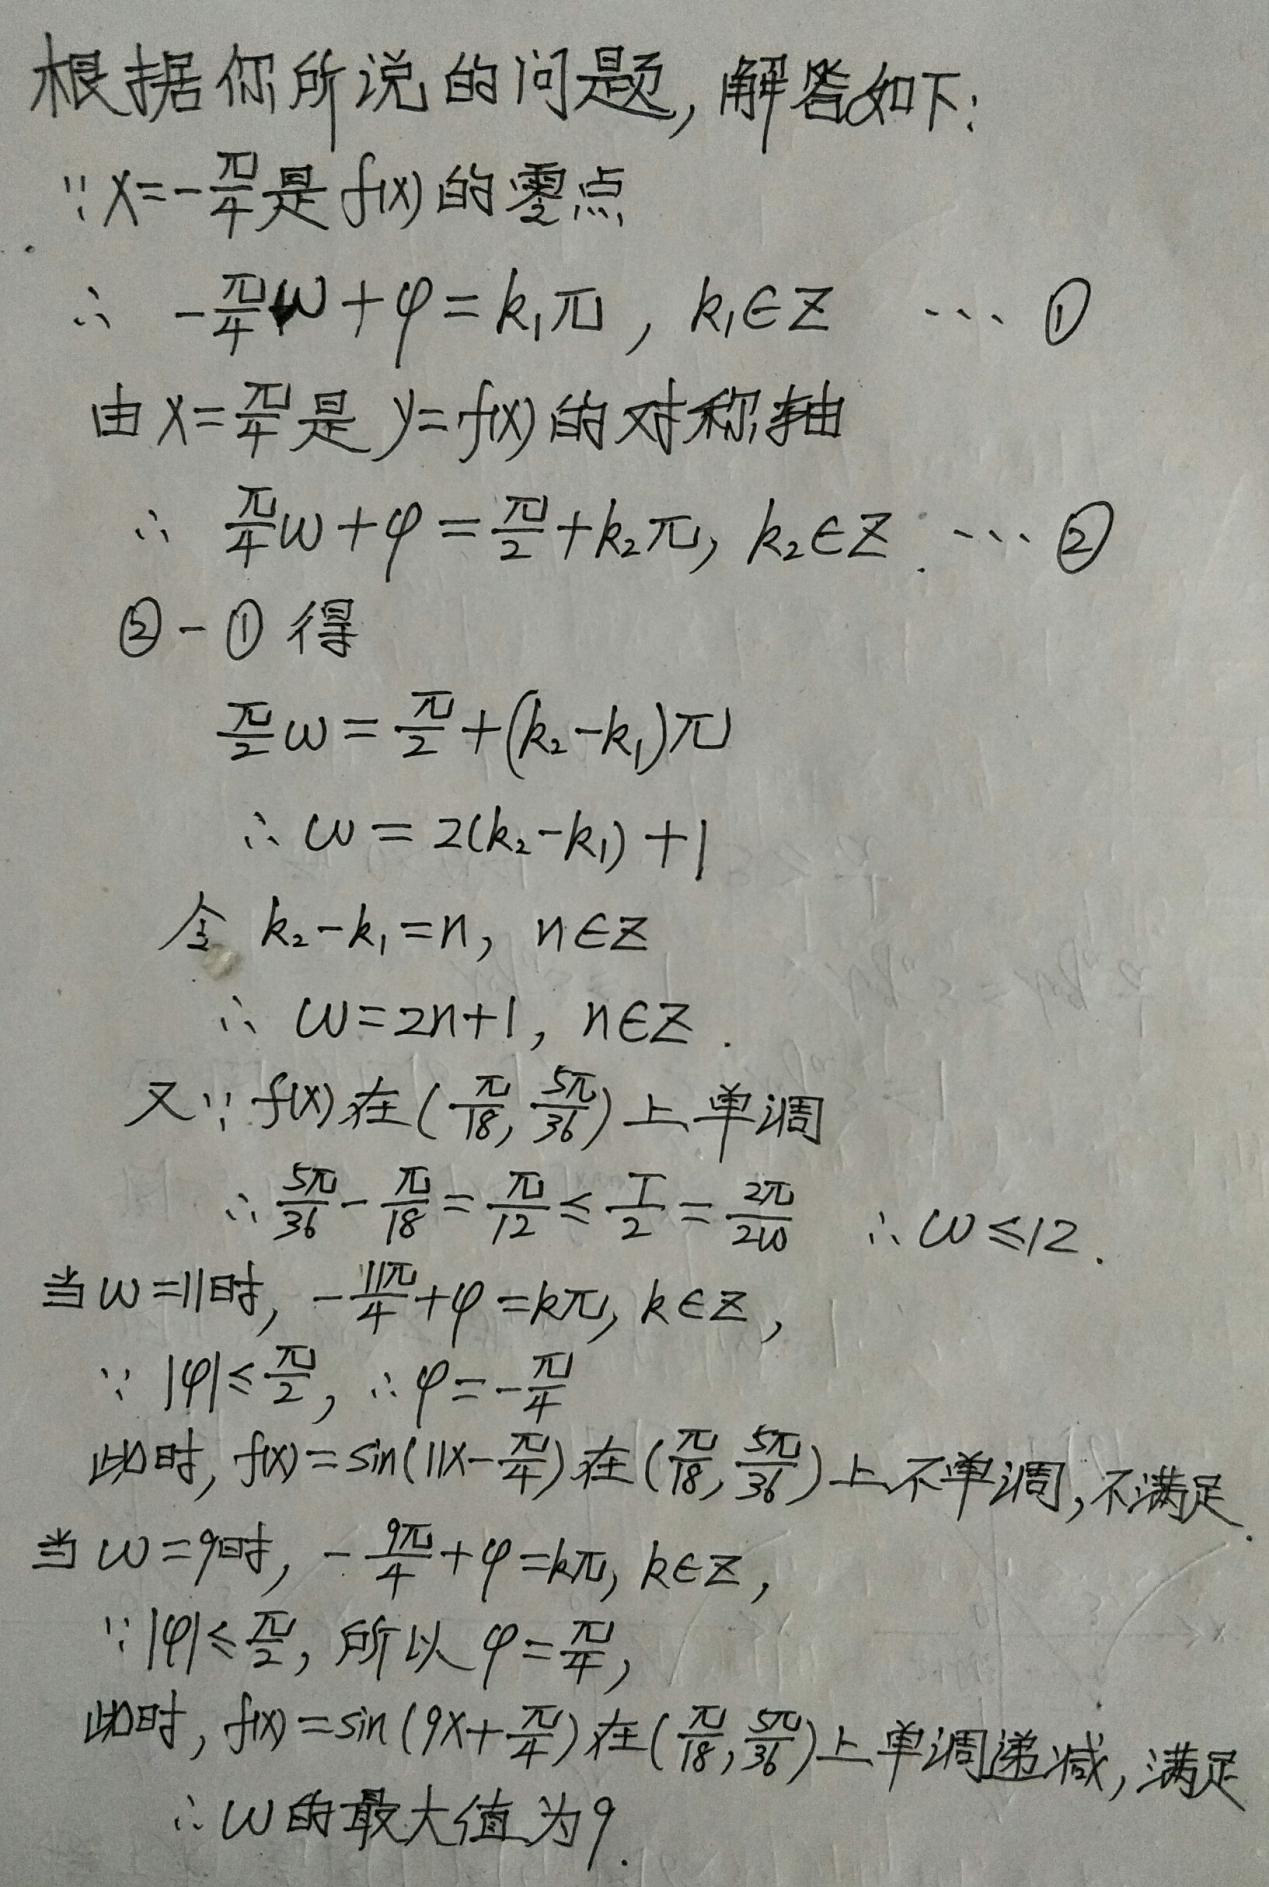 根据你所说的问题,解答如下:
∵x=-π/4是f(x)的零点
∴ -π/4ω+φ=k₁π, k₁∈Z ···①
由x=π/4是y=f(x)的对称轴
∴ π/4ω+φ=π/2+k₂π, k₂∈Z. ···②
②-①得
π/2ω=π/2+(k₂-k₁)π
∴ω=2(k₂-k₁)+1
令 k₂-k₁=n, n∈Z
∴ ω=2n+1, n∈Z.
又∵f(x)在(π/18, 5π/36)上单调
∴5π/36-π/18=π/12≤T/2=2π/2ω ∴ω≤12.
当ω=11时, -11π/4+φ=kπ, k∈Z,
∵|φ|≤π/2, ∴φ=-π/4
此时, f(x)=sin(11x-π/4)在(π/18, 5π/36)上不单调,不满足.
当ω=9时, -9π/4+φ=kπ, k∈Z,
∵|φ|≤π/2, 所以φ=π/4,
此时, f(x)=sin(9x+π/4)在(π/18, 5π/36)上单调递减,满足
∴ω的最大值为9.